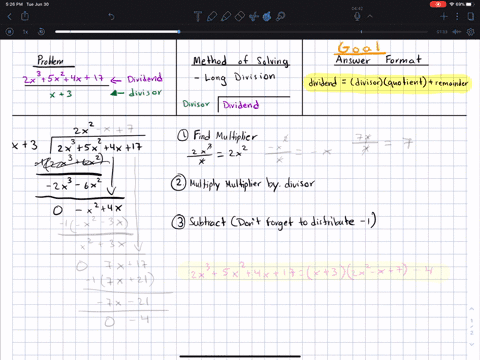 5:26 PM Tue Jun 30
04:42
Problem
2x³+5x²+4x+17 ← Dividend
x+3 ← divisor
Method of Solving
- Long Division
Divisor Dividend
Goal
Answer Format
dividend = (divisor)(quotient) + remainder
2x² - x + 7
x+3 2x³+5x²+4x+17
-1(2x³+6x²)
-2x³-6x²
0 -x²+4x
-1(-x²-3x)
x²+3x
0 7x+17
-1(7x+21)
-7x-21
0 -4
① Find Multiplier
2x³/x = 2x² -x²/x = -x 7x/x = 7
② Multiply Multiplier by divisor
③ Subtract (Don't forget to distribute -1)
2x³+5x²+4x+17 = (x+3)(2x²-x+7) - 4